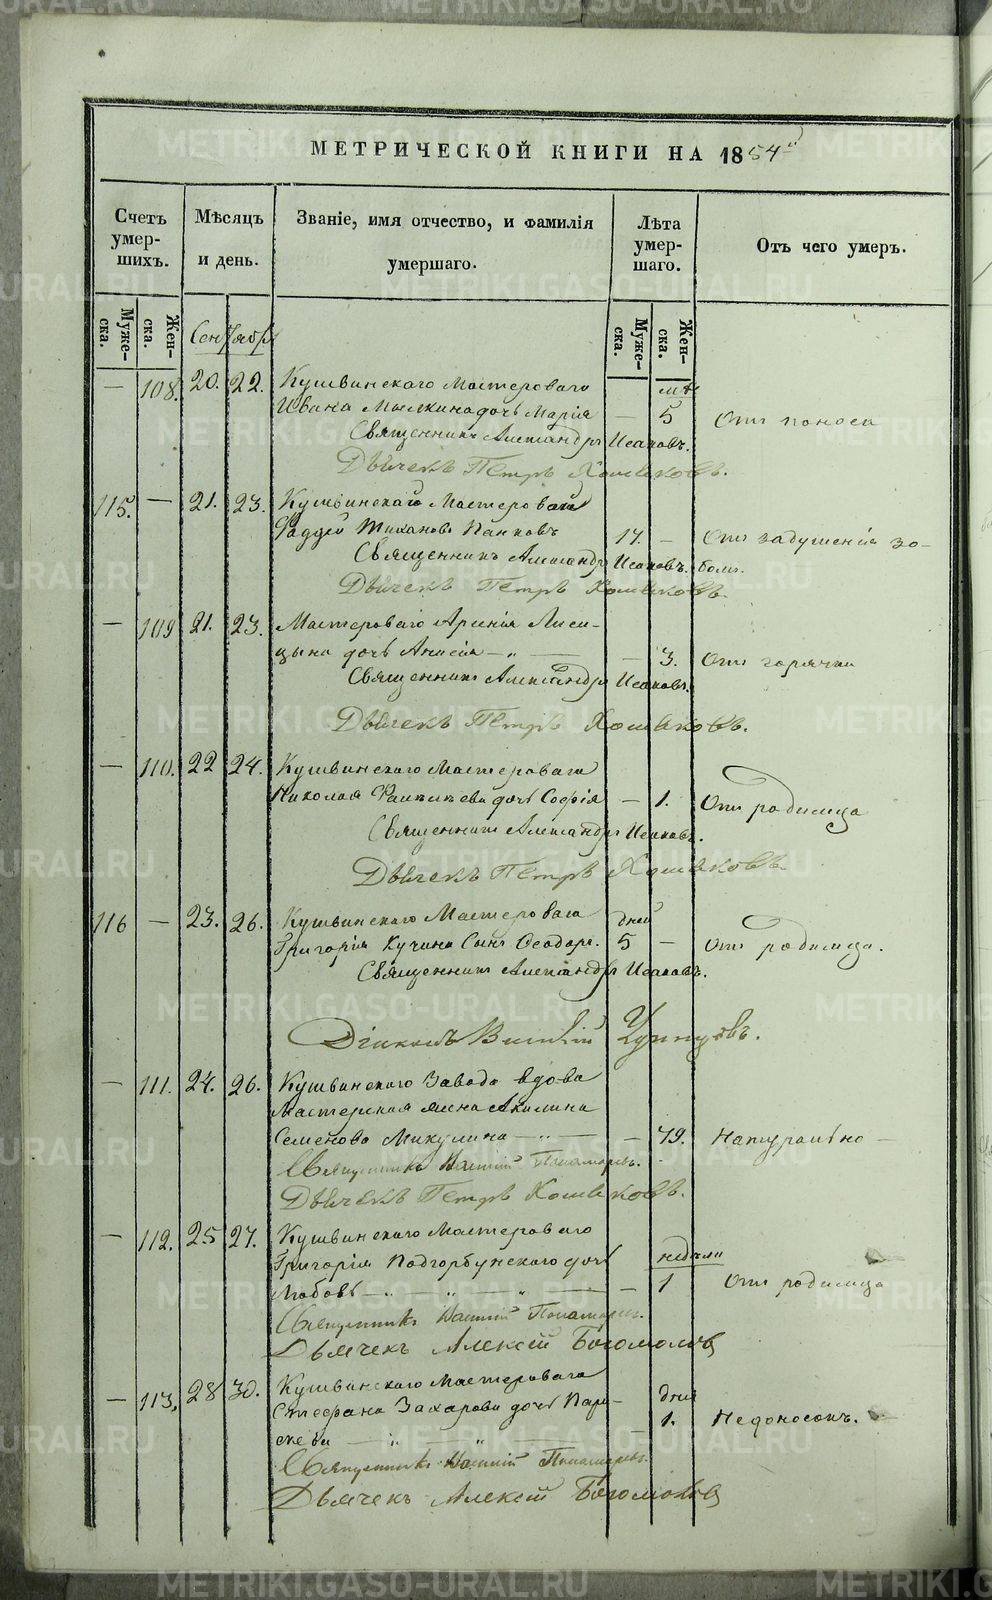 МЕТРИЧЕСКОЙ КНИГИ НА 1854й
Счетъ умер-шихъ.
Мѣсяцъ и день.
Званіе, имя отчество, и фамилія умершаго.
Лѣта умер-шаго.
Отъ чего умеръ.
Муже-ска.
Жен-ска.
Муже-ска.
Жен-ска.
Сентябрь
— 108. 20. 22. Кушвинскаго Мастероваго
Ивана дочь Марія — 5 Отъ поноса
Священникъ Александръ Исаковъ.
Дьячекъ Петръ Хомяковъ.
115. — 21. 23. Кушвинскаго Мастероваго
Фаддей Тихановъ Панковъ 17. — Отъ задушенія зо-
Священникъ Александръ Исаковъ. бомъ.
Дьячекъ Петръ Хомяковъ.
— 109 21. 23. Мастероваго Арсенія Лиси-
цына дочь Анисія — „ — — 3. Отъ горячки
Священникъ Александръ Исаковъ.
Дьячекъ Петръ Хомяковъ.
— 110. 22 24. Кушвинскаго Мастероваго
Николая дочь Софія — 1. Отъ родимца
Священникъ Александръ Исаковъ.
Дьячекъ Петръ Хомяковъ.
116 — 23. 26. Кушвинскаго Мастероваго дней
Григорія Кучина Сынъ Ѳеодоръ. 5 — Отъ родимца.
Священникъ Александръ Исаковъ.
Діаконъ Василій
— 111. 24. 26. Кушвинскаго Завода вдова
Мастерская жена Акилина
Семенова Микулина — „ — — 79. Натурально —
Священникъ Пономаревъ.
Дьячекъ Петръ Хомяковъ.
— 112. 25 27. Кушвинскаго Мастероваго
Григорія Подгорбунскаго дочь недѣли
Любовь — „ — „ — „ — — 1 Отъ родимца
Священникъ Пономаревъ.
Дьячекъ Алексѣй Богомоловъ
— 113. 28 30. Кушвинскаго Мастероваго
Стефана Захарова дочь Пара- дня
скева — „ — „ — 1. Недоносокъ.
Священникъ Пономаревъ.
Дьячекъ Алексѣй Богомоловъ
METRIKI.GASO-URAL.RU